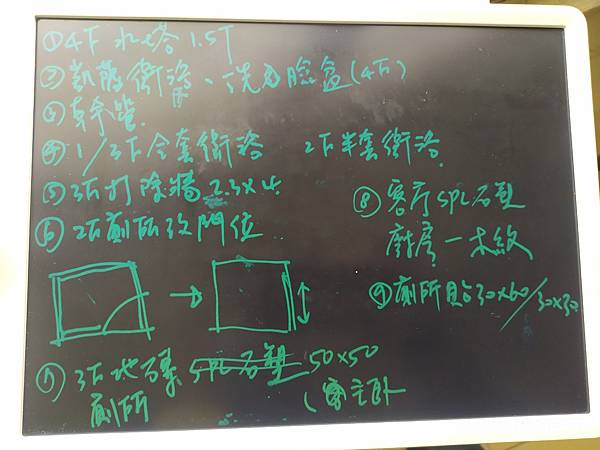 ①4F 水塔 1.5T
②凱薩衛浴、洗臉盆(4F)
③
④1/3F全套衛浴 2F半套衛浴
⑤3F打除牆 2.3×4
⑥2F廁所改門位
⑦3F地磚 SPC石塑 50×50
廁所 主臥
⑧客厅SPC石塑
廚房一木紋
⑨廁所貼30×60/30×30